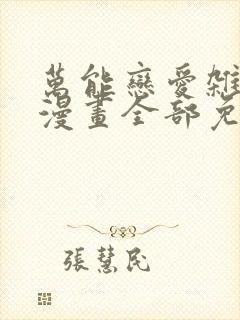 萬能戀愛雜
漫畫全部免
張慧民